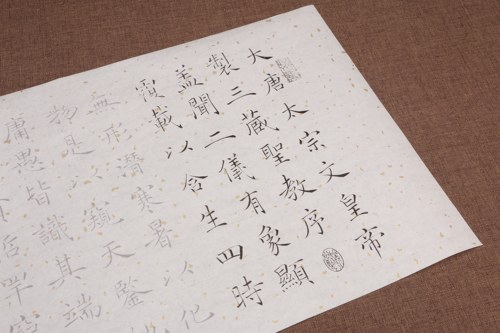 大唐太宗文皇帝
製三藏聖教序
盖聞二儀有象顯
覆載以含生四時
無形潛寒暑以化
物是以窺天鑒
庸愚皆識其端
哲罕窮